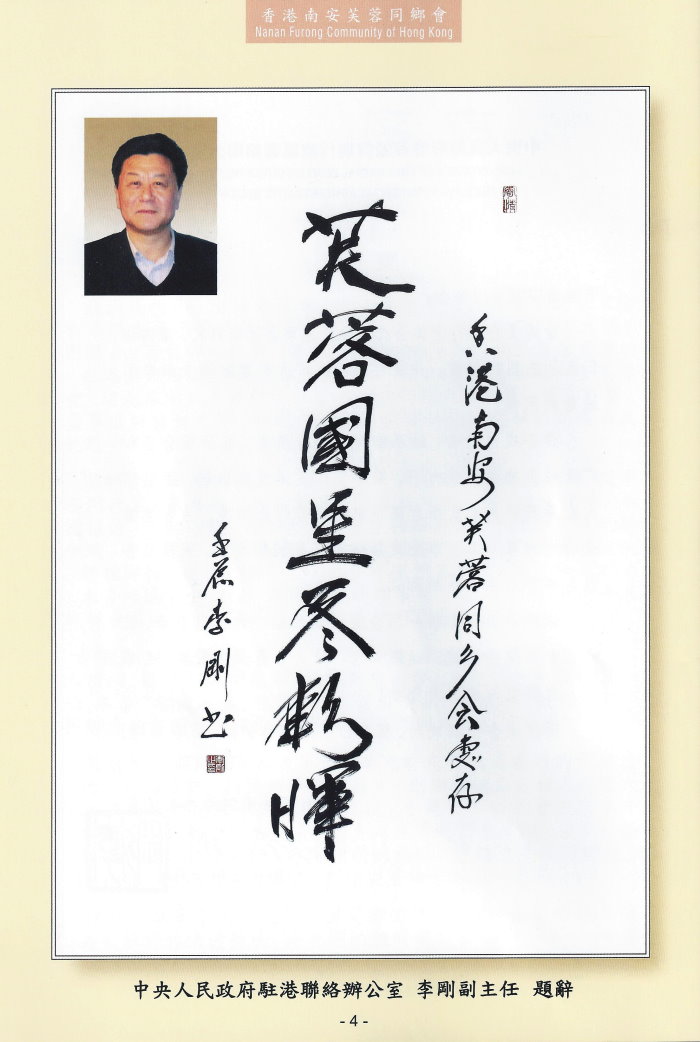 香港南安芙蓉同鄉會
Nanan Furong Community of Hong Kong
香港南安芙蓉同乡会惠存
芙蓉國里尽朝暉
李剛书
中央人民政府駐港聯絡辦公室 李剛副主任 題辭
- 4 -